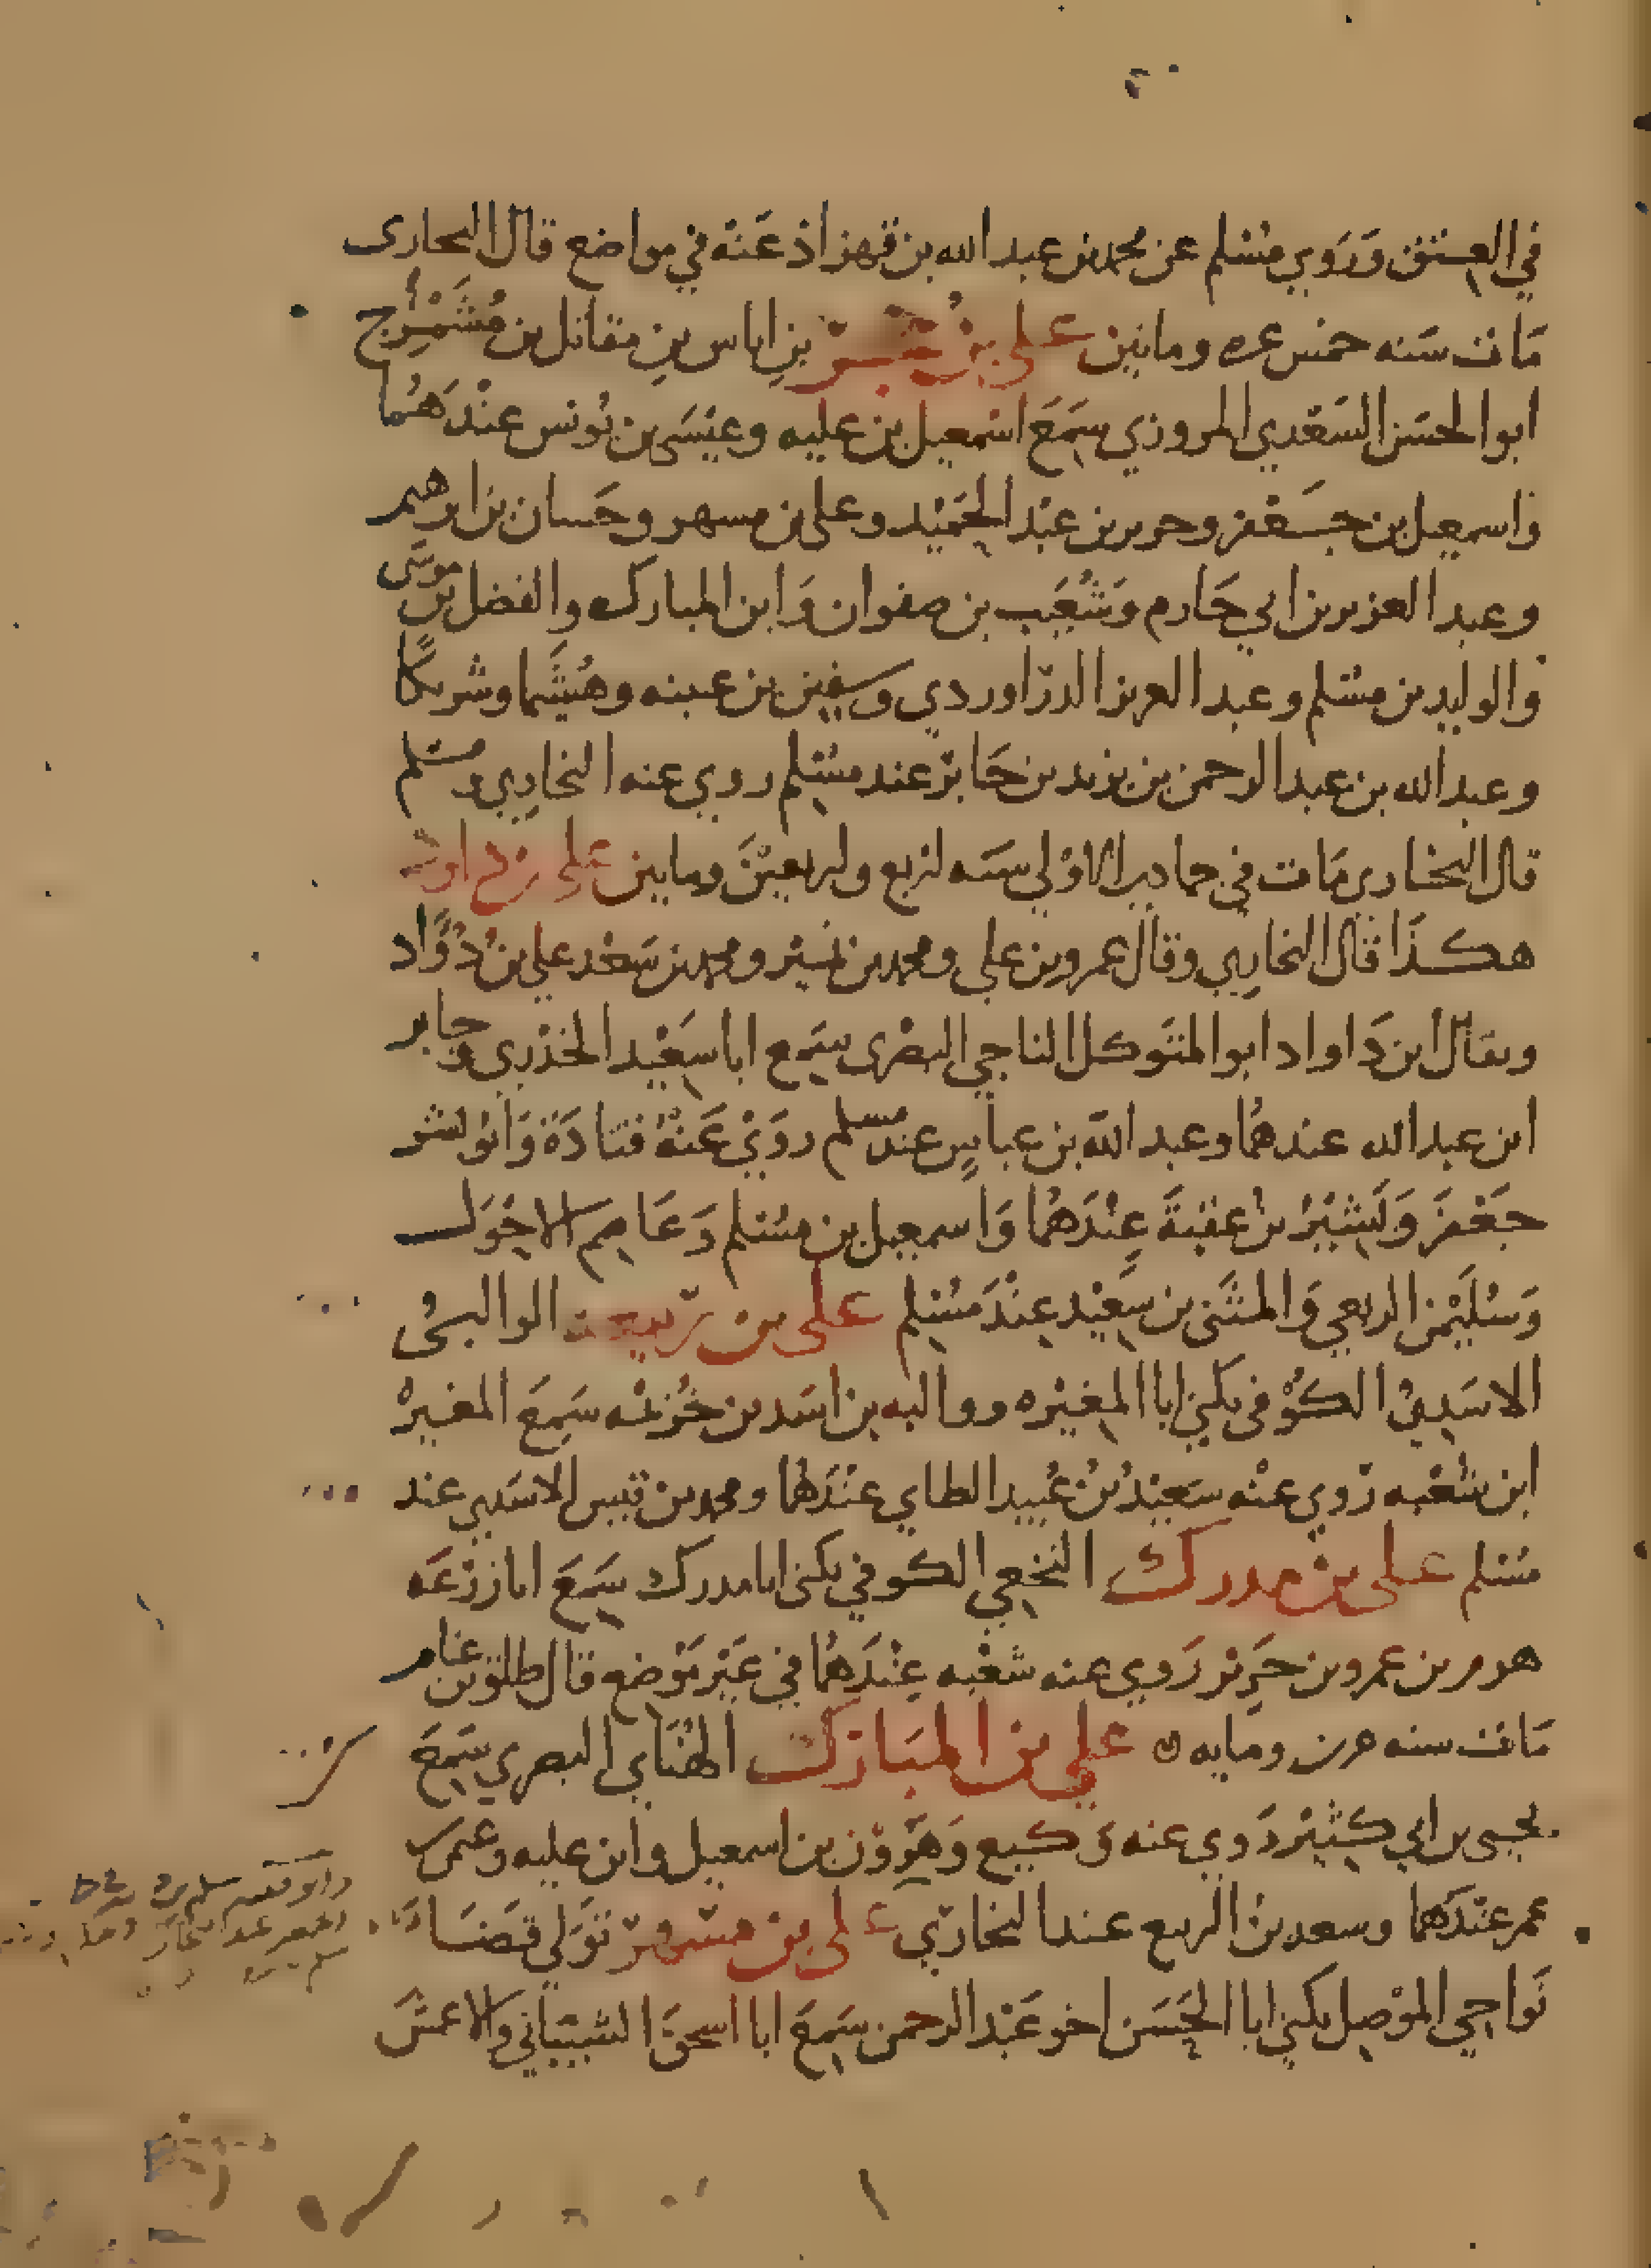 في العتق وروي مسلم عن محمد بن عبد الله بن قهزاذ عنه في مواضع قال البخاري
مات سنه خمس عره ومايتين علي بن حجر بن اياس بن مقاتل بن مشمرج
ابوا الحسن السعدي المروزي سمع اسمعيل بن عليه وعيسى بن يونس عندهما
واسمعيل بن جعفر وجرير بن عبد الحميد وعلي بن مسهر وحسان بن ابرهيم
وعبد العزيز بن ابي حازم وشعيب بن صفوان وابن المبارك والفضل بن موسى
والوليد بن مسلم وعبد العزيز الدراوردي وسفين بن عيينه وهشيما وشريكا
وعبد الله بن عبد الرحمن بن يزيد بن جابر عند مسلم روي عنه البخاري ومسلم
قال البخاري مات في جمادي الاولي سنه اربع واربعين ومايتين علي بن داود
هكذا قال البخاري وقال عمرو بن علي ومحمد بن نمير ومحمد بن سعد علي بن دؤاد
ويقال ابن داواد ابوا المتوكل الناجي البصري سمع ابا سعيد الخدري وجابر
ابن عبد الله عندهما وعبد الله بن عباس عند مسلم روي عنه قتادة وابو بشر
جعفر وبشير بن عقبة عندهما واسمعيل بن مسلم وعاصم الاحول
وسليمن الربعي والمثنى بن سعيد عند مسلم علي بن ربيعة الوالبي
الاسدي الكوفي يكني ابا المغيره ووالبه بن اسد بن خزيمه سمع المغيرة
ابن شعبه روي عنه سعيد بن عبيد الطاي عندهما ومحمد بن قيس الاسدي عند
مسلم علي بن مدرك النخعي الكوفي يكني ابا مدرك سمع ابا زرعه
هرم بن عمرو بن جرير روي عنه شعبه عندهما في غير موضع قال طلق بن غنام
مات سنه عرين ومايه علي بن المبارك الهناي البصري سمع
يحيى بن ابي كثير روي عنه وكيع وهرون بن اسمعيل وابن عليه وعثمن بن
عمر عندهما وسعد بن الربيع عند البخاري علي بن مسهر تولي قضا
نواحي الموصل يكني ابا الحسن اخو عبد الرحمن سمع ابا اسحق الشيباني والاعمش